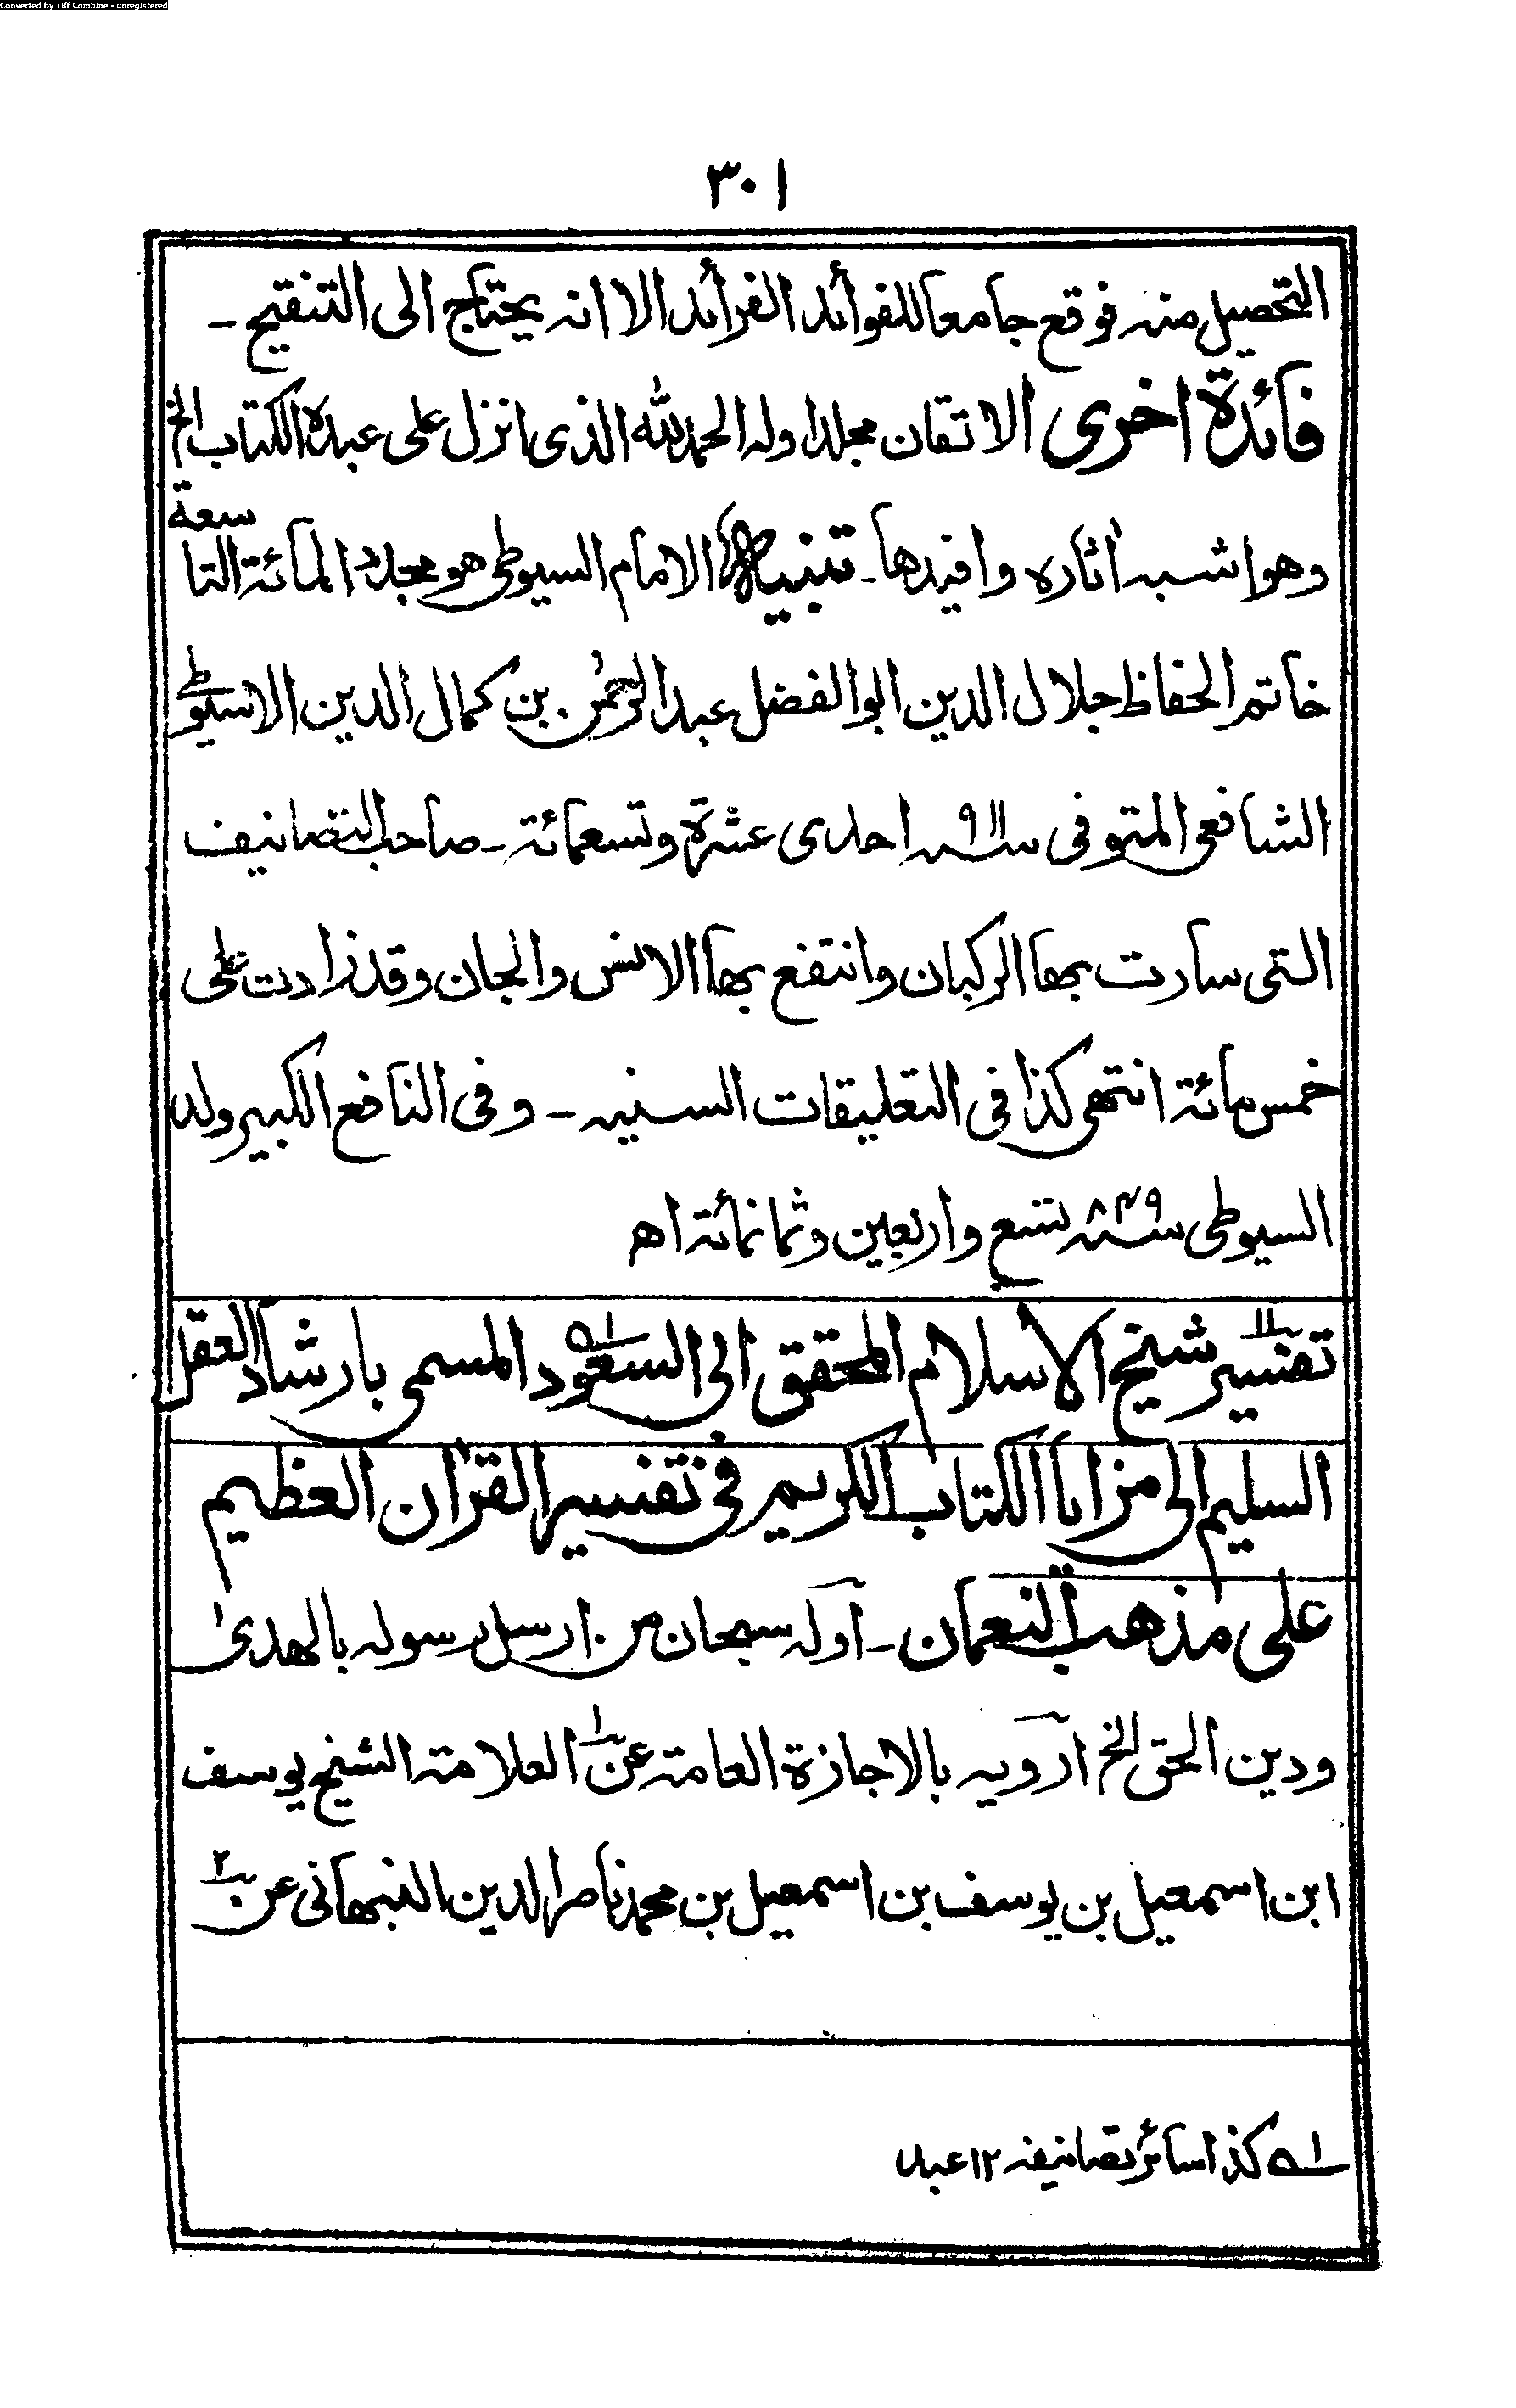 Converted by Tiff Combine - unregistered
٣٠١
التحصيل منه فوقع جامعا للفوائد الفرائد الا انه يحتاج الى التنقيح ـ
فائدة اخرى الاتقان مجلد اوله الحمد لله الذى انزل على عبده الكتاب الخ
وهو اشبه اثاره وافيدها ـ تنبيه الامام السيوطى هو مجدد المائة التاسعة
خاتم الحفاظ جلال الدين ابو الفضل عبد الرحمٰن بن كمال الدين الاسيوطى
الشافعى المتوفى سنه ٩١١ احدى عشرة وتسعمائة ـ صاحب التصانيف
التى سارت بها الركبان وانتفع بها الانس والجان وقد زادت على
خمس مائة انتهى كذا فى التعليقات السنيه ـ وفى النافع الكبير ولد
السيوطى سنه ٨٤٩ تسع واربعين وثمانمائة اھ
١١ تفسير شيخ الاسلام المحقق ابى السعود ١ه المسمى بارشاد العقل
السليم الى مزايا الكتاب الكريم فى تفسير القراٰن العظيم
على مذهب النعمان ـ اوله سبحان من ارسل رسوله بالهدىٰ
ودين الحق الخ ارويه بالاجازة العامة عن ١ العلامة الشيخ يوسف
ابن اسمعيل بن يوسف بن اسمعيل بن محمد ناصر الدين النبهانى عن ٢
١ه كذا سائر تصانيفه ١٢ عبد